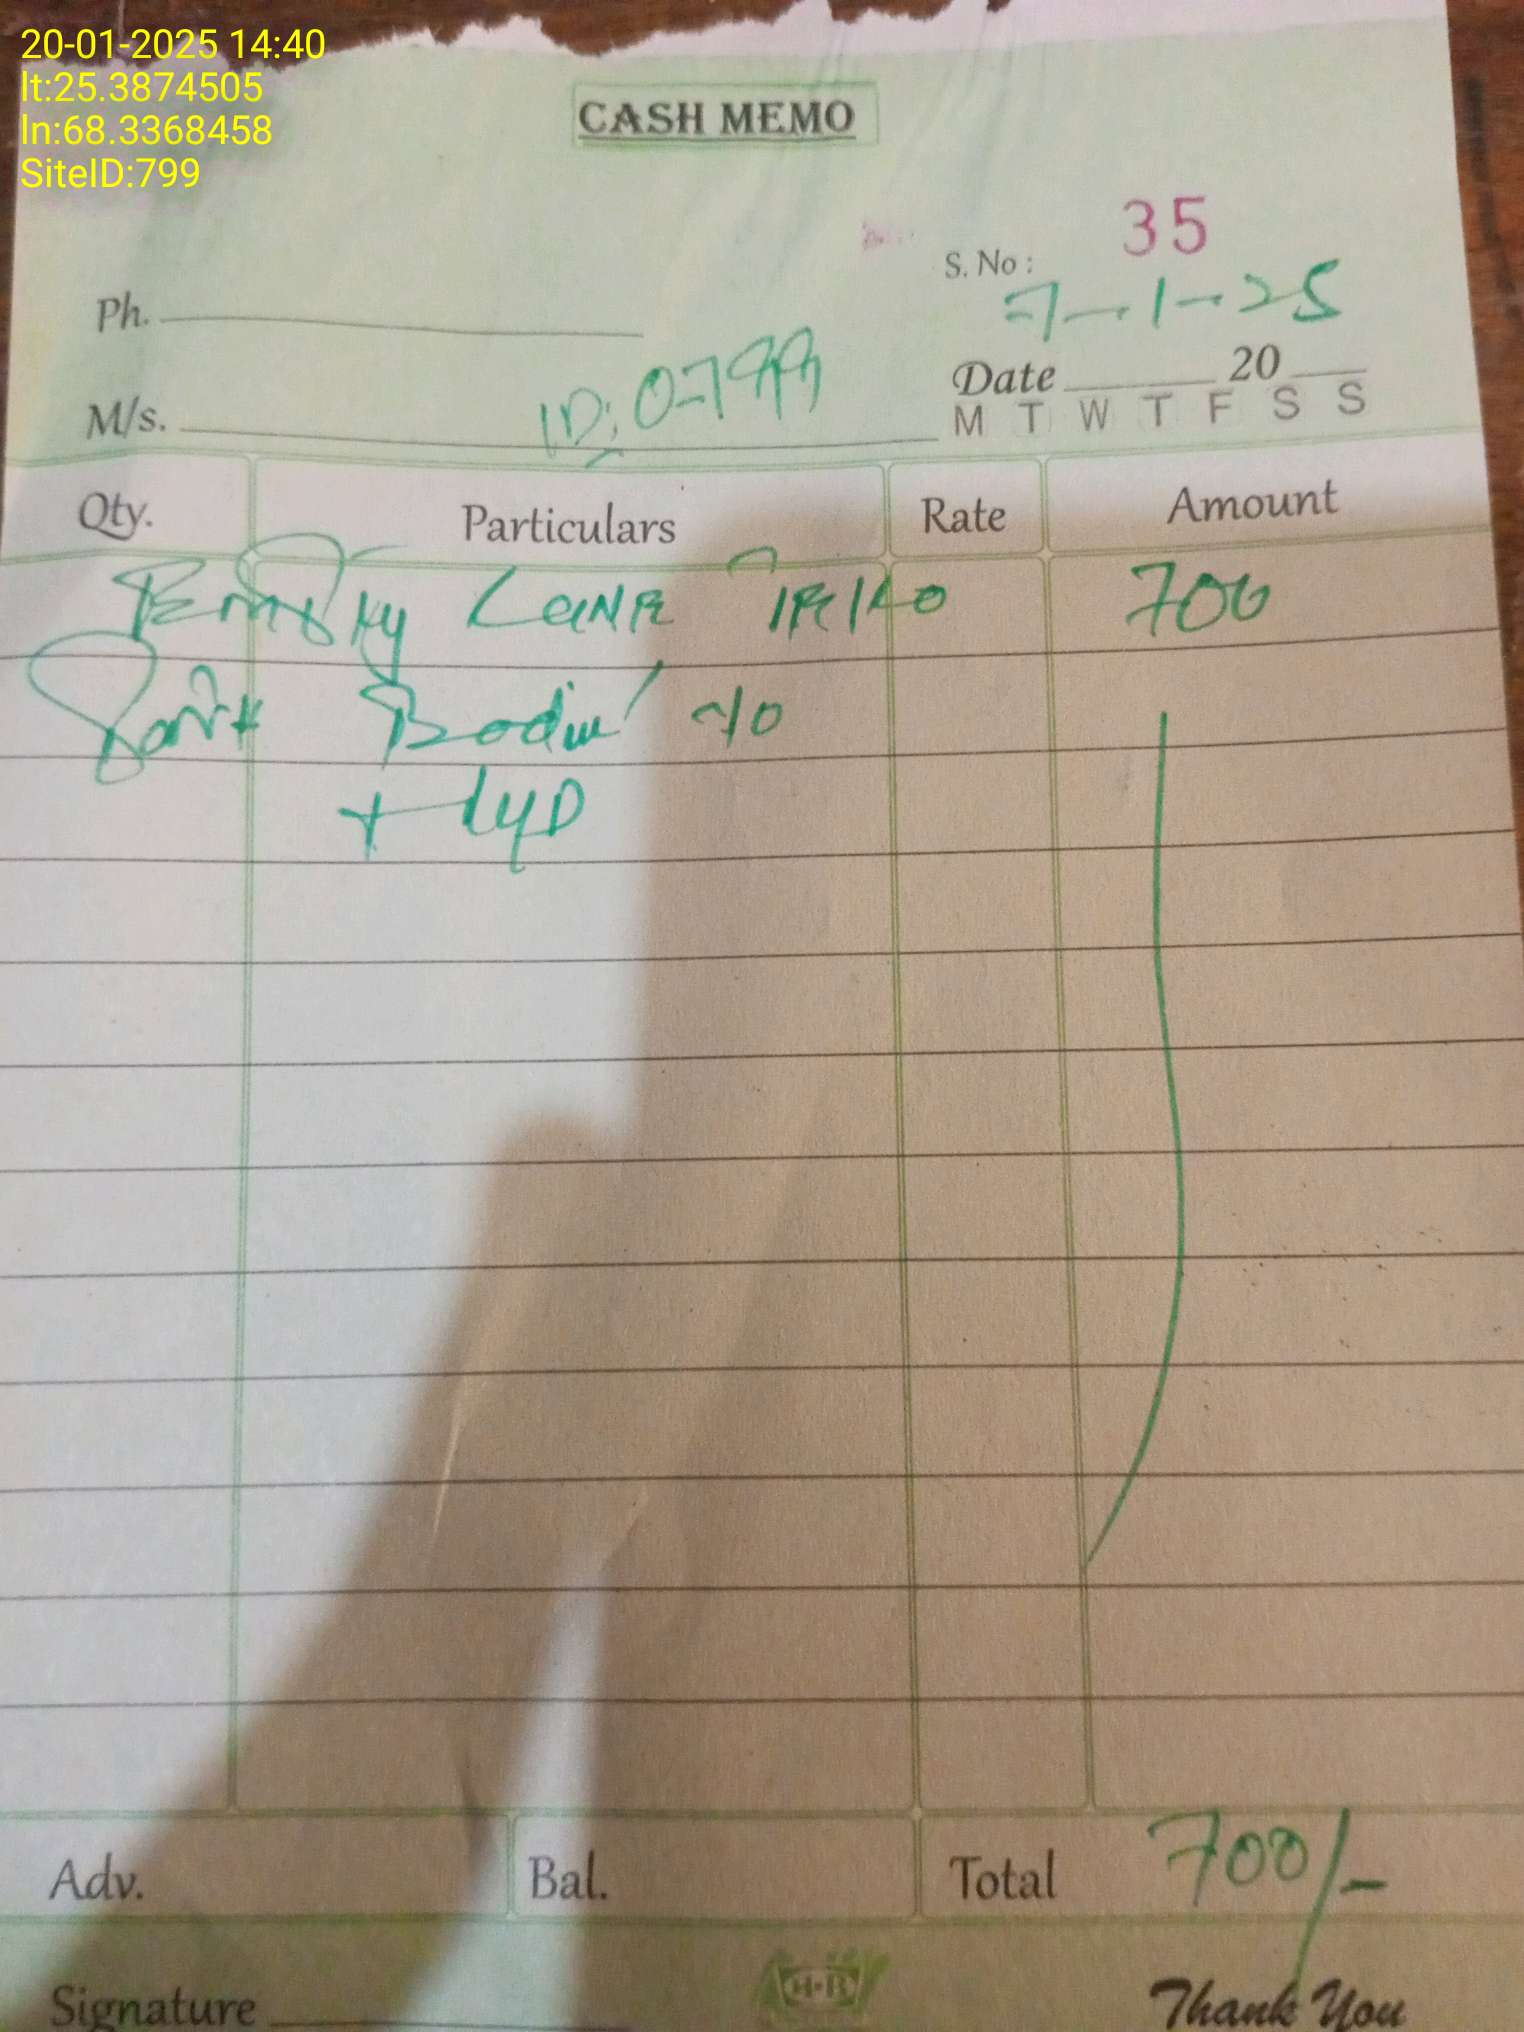 20-01-2025 14:40
lt:25.3874505
ln:68.3368458
SiteID:799
CASH MEMO
S. No : 35
7-1-25
Ph.
Date 20
M/s. ID: 0799
M T W T F S S
Qty. Particulars Rate Amount
700
+ HyD
Adv. Bal. Total 700/-
H-R
Signature Thank You